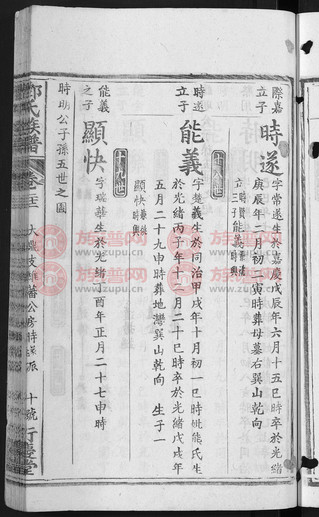 際嘉
立子
時遂
字常遂生於嘉慶戊辰年六月十五巳時卒於光緒
庚辰年二月初二寅時葬母墓右巽山乾向
立三子能義
時遂
立子
能義
字楚義生於同治甲戌年十月初一巳時妣熊氏生
於光緒丙子年十一月二十巳時卒於光緒戊戌年
五月二十九申時葬地灣巽山乾向 生子一
顯快
能義
之子
顯快
字瑞華生於光緒丁酉年正月二十七申時
時助公子孫五世之圖
氏族譜
卷之
公房時遂派
十號
行慶堂
族譜网
zupu.cn